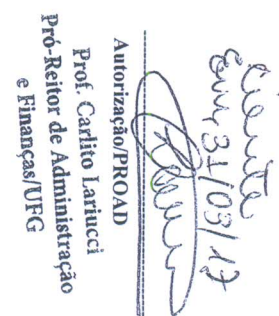 Ciente
Em, 31/03/17
Autorização/PROAD
Prof. Carlito Lariucci
Pró-Reitor de Administração
e Finanças/UFG